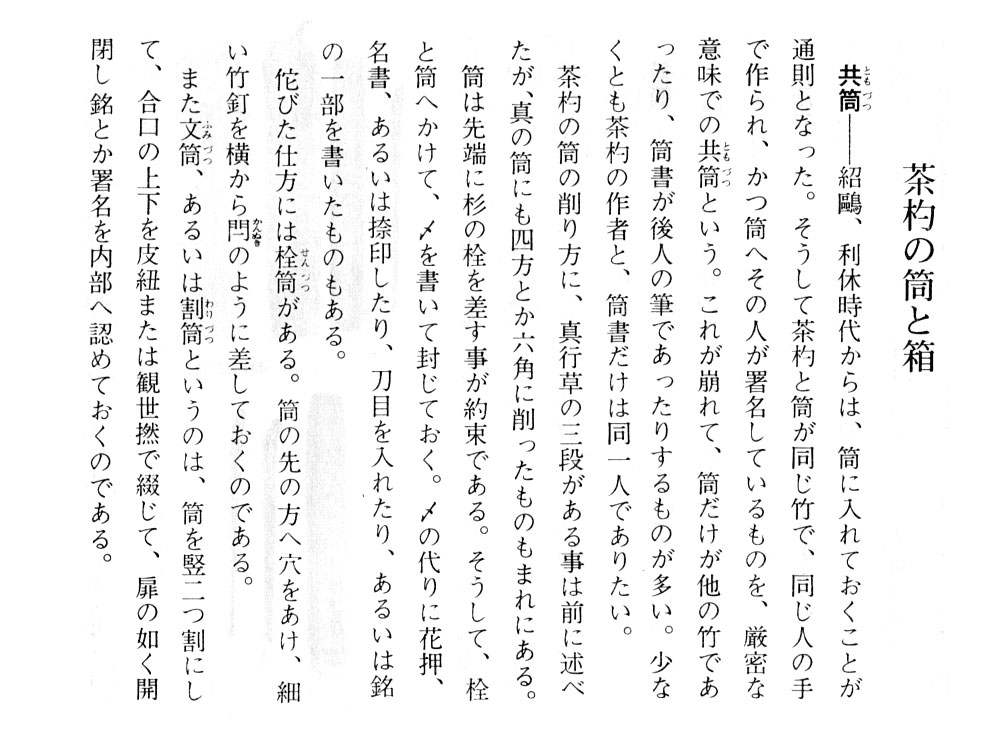 茶杓の筒と箱
共筒――紹鷗、利休時代からは、筒に入れておくことが
通則となった。そうして茶杓と筒が同じ竹で、同じ人の手
で作られ、かつ筒へその人が署名しているものを、厳密な
意味での共筒という。これが崩れて、筒だけが他の竹であ
ったり、筒書が後人の筆であったりするものが多い。少な
くとも茶杓の作者と、筒書だけは同一人でありたい。
茶杓の筒の削り方に、真行草の三段がある事は前に述べ
たが、真の筒にも四方とか六角に削ったものもまれにある。
筒は先端に杉の栓を差す事が約束である。そうして、栓
と筒へかけて、〆を書いて封じておく。〆の代りに花押、
名書、あるいは捺印したり、刀目を入れたり、あるいは銘
の一部を書いたものもある。
佗びた仕方には栓筒がある。筒の先の方へ穴をあけ、細
い竹釘を横から閂のように差しておくのである。
また文筒、あるいは割筒というのは、筒を竪二つ割にし
て、合口の上下を皮紐または観世撚で綴じて、扉の如く開
閉し銘とか署名を内部へ認めておくのである。